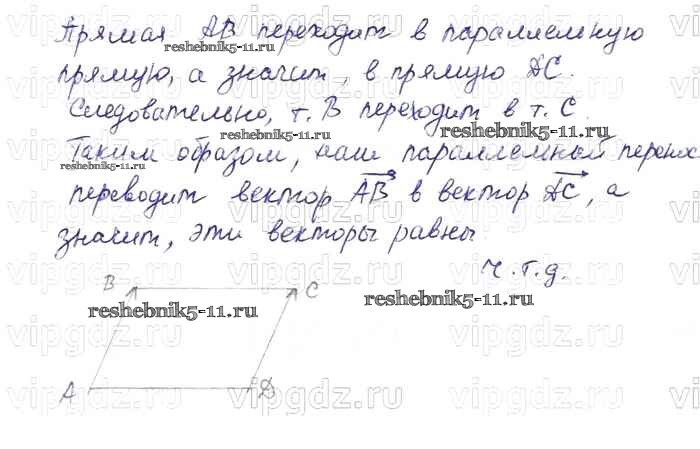 Прямая AB переходит в параллельную
прямую, а значит, в прямую DC.
Следовательно, т. B переходит в т. C.
Таким образом, наш параллельный перенос
переводит вектор AB в вектор DC, а
значит, эти векторы равны.
ч.т.д.
B
C
A
D
reshebnik5-11.ru
reshebnik5-11.ru
reshebnik5-11.ru
reshebnik5-11.ru
reshebnik5-11.ru
reshebnik5-11.ru
vipgdz.ru
vipgdz.ru
vipgdz.ru
vipgdz.ru